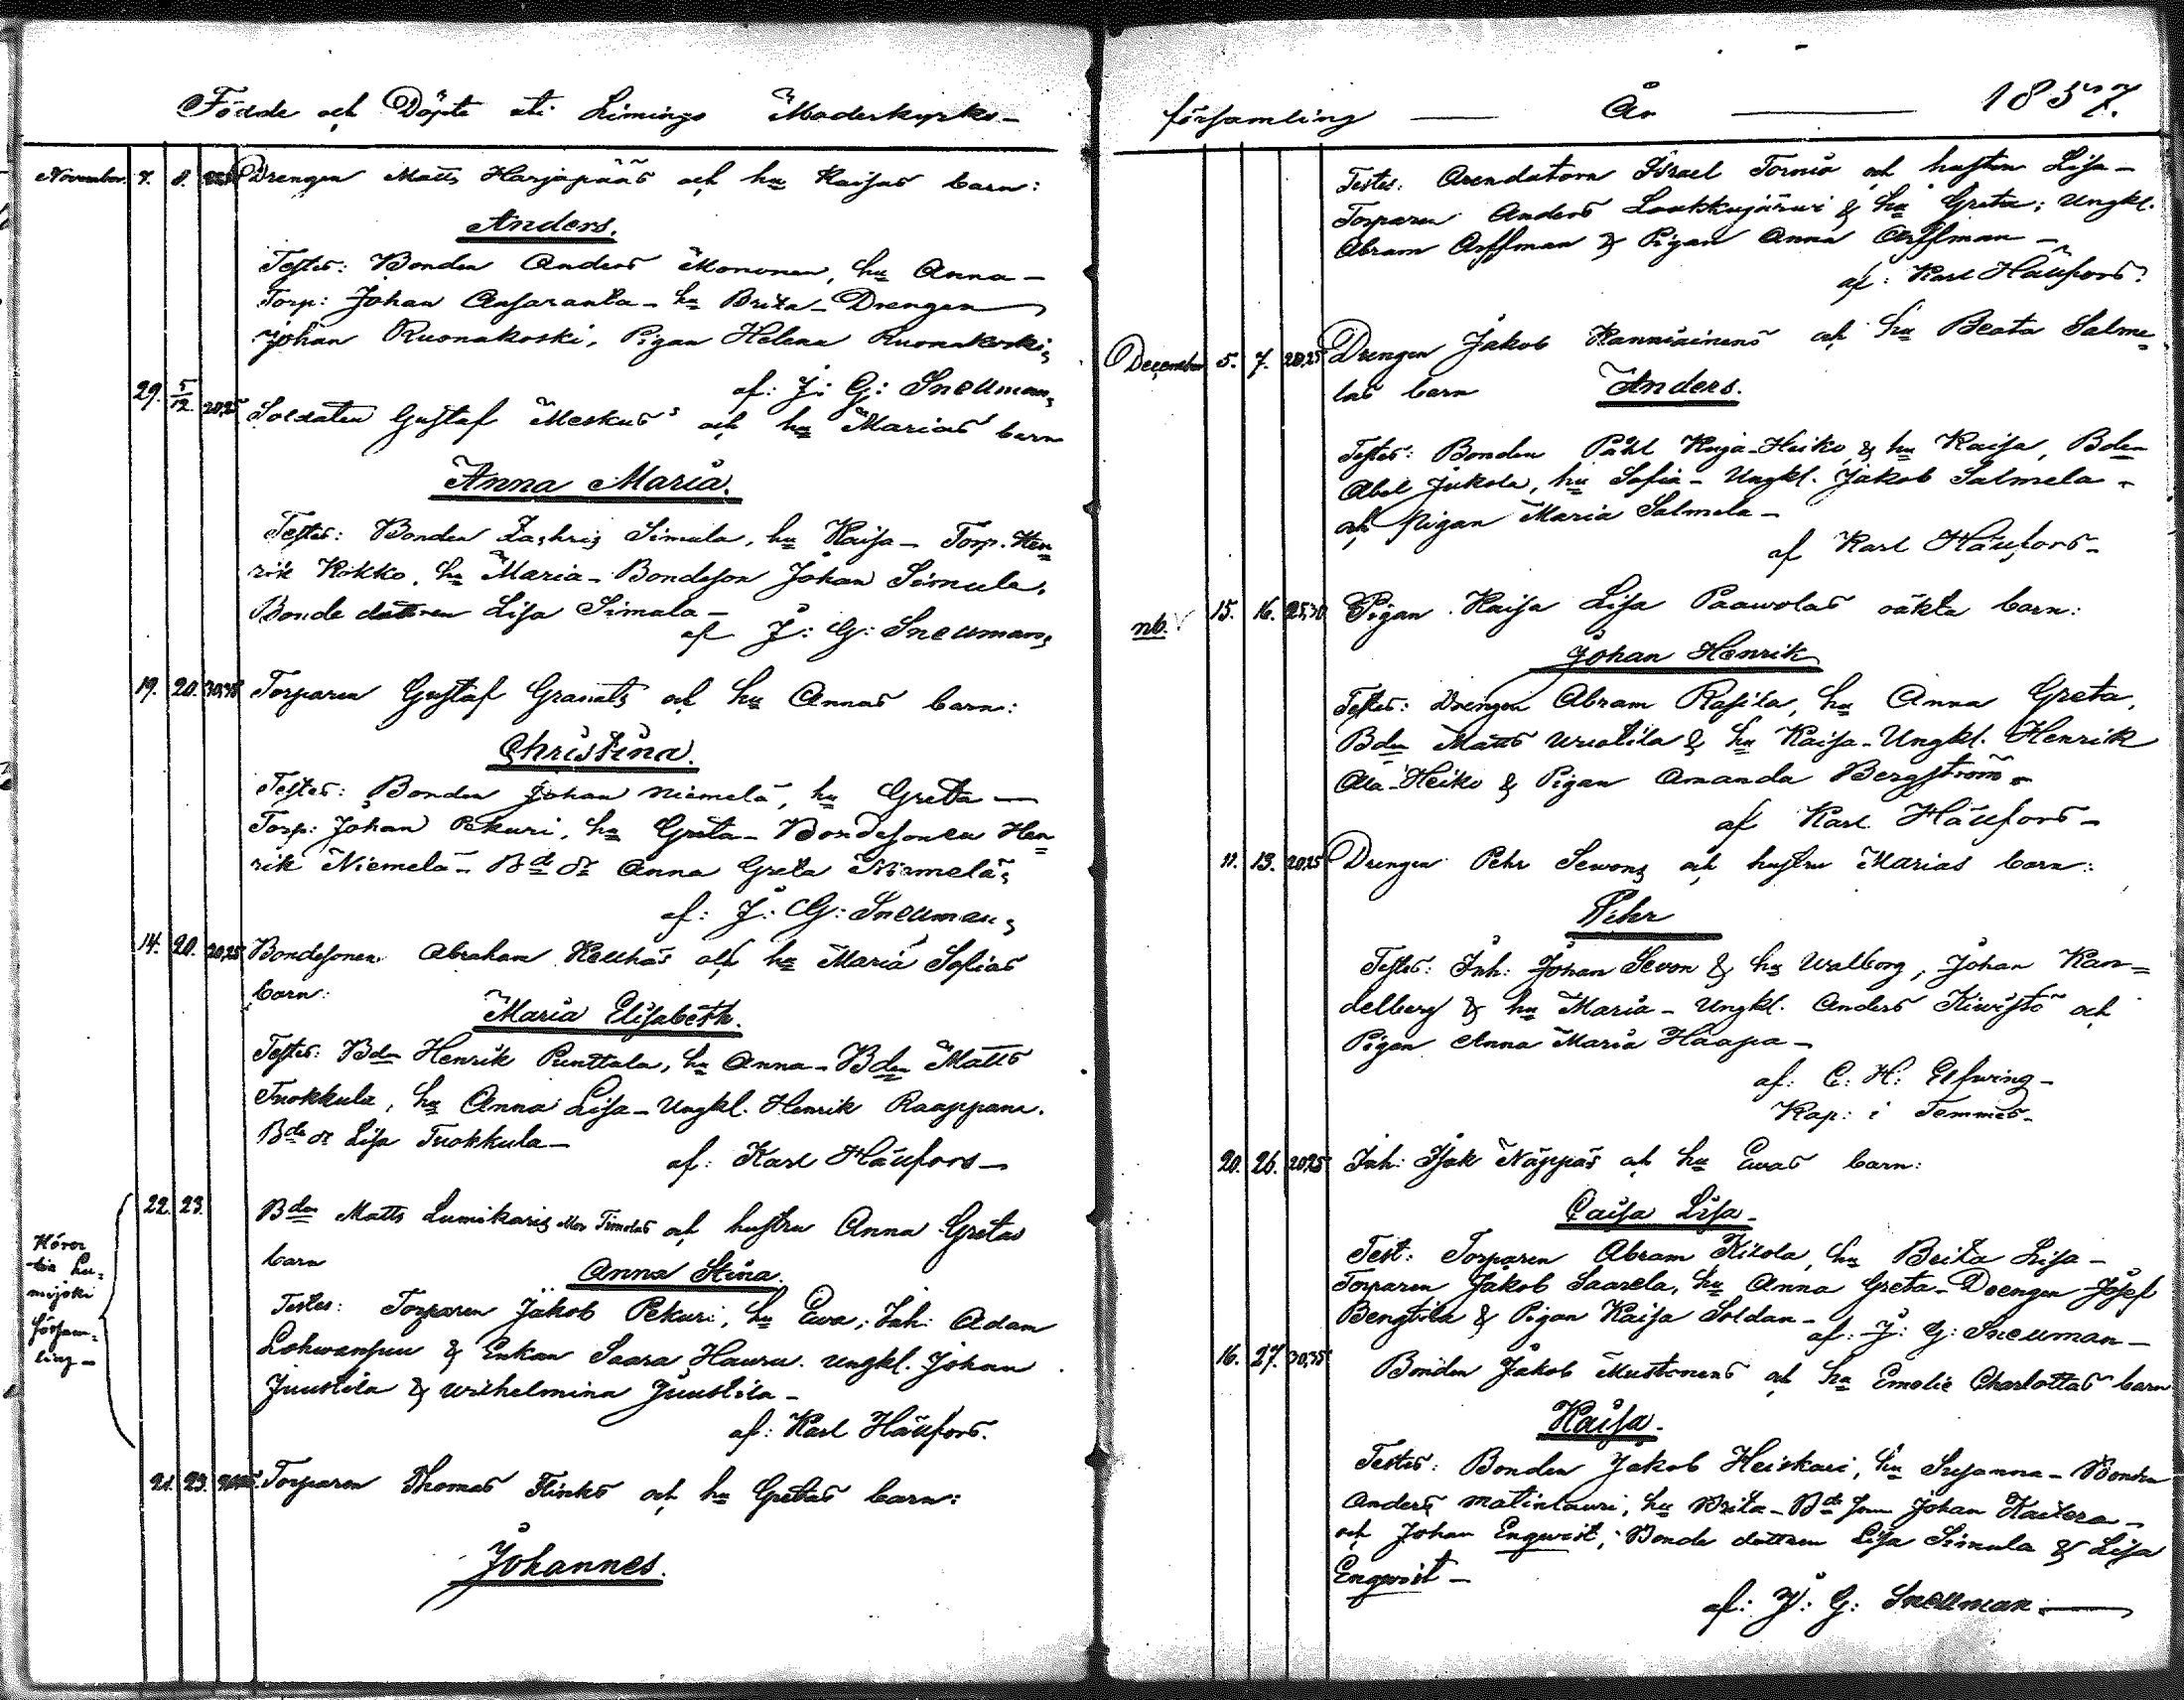 Födde och Döpte uti Limingo Moderkyrko-
November. 7. 8. Drengen Matts Harjapääs och hu Kaisas barn:
Anders.
Testes: Bonden Anders Mononen, hu Anna -
Torp: Johan Ansaranta - hu Brita - Drengen
Johan Ruonakoski, Pigan Helena Ruonakoski,
af: J: G: Snellman,
29. 5/12. 20,25 Soldaten Gustaf Meskus's och hu Marias barn
Anna Maria.
Testes: Bonden Zachris Simula, hu Kaisa - Torp. Hen=
rik Kokko, hu Maria - Bondeson Johan Simula,
Bonde dottren Lisa Simula -
af J: G: Snellman,
19. 20. 30,35 Torparen Gustaf Granats och hu Annas barn:
Christina.
Testes: Bonden Johan Niemelä, hu Greta -
Torp: Johan Pekuri, hu Greta - Bondesonen Hen=
rik Niemelä - Bde dr Anna Greta Niemelä,
af: J: G: Snellman,
14. 20. 20,25 Bondesonen Abraham Keuhäs och hu Maria Sofias
barn:
Maria Elisabeth.
Testes: Bdn Henrik Punttala, hu Anna - Bdn Matts
Tuokkula, hu Anna Lisa - Ungkl. Henrik Raappana.
Bde dr Lisa Tuokkula -
af: Karl Hällfors -
22. 23. Bdn Matts Lumikaris och hustru Anna Gretas
barn
Anna Stina.
Hörer
till Lu=
mijoki
försam=
ling -
Testes: Torparen Jakob Pekuri, hu Ewa; Inh: Adam
Lohwansuu & Enkan Saara Hauru. Ungkl. Johan
Juustila & Wilhelmina Juustila -
af: Karl Hällfors.
21. 23. Torparen Thomas Flinks och hu Gretas barn:
Johannes.
församling — År — 1857.
Testes: Arendatorn Israel Torniö och hustru Lisa -
Torparen Anders Laukkujärwi & hu Greta; Ungkl.
Abram Orffman & Pigan Anna Orffman -
af: Karl Hällfors
December 5. 7. 20,25 Drengen Jakob Kanniainens och hu Beata Salme=
las barn Anders.
Testes: Bonden Påhl Kuja-Heiko & hu Kaisa, Bdn
Abel Jukola, hu Sofia - Ungkl. Jakob Salmela -
och Pigan Maria Salmela -
af Karl Hällfors -
nb. 15. 16. 25,30 Pigan Kaisa Lisa Paawolas oäkta barn:
Johan Henrik
Testes: Drengen Abram Rasila, hu Anna Greta,
Bdn Matts Uusitila & hu Kaisa - Ungkl. Henrik
Ala-Heiko & Pigan Amanda Bergström -
af Karl Hällfors -
11. 13. 20,25 Drengen Pehr Sewons och hustru Marias barn:
Pehr
Testes: Inh: Johan Sevon & hu Walborg, Johan Kan=
delberg & hu Maria - Ungkl. Anders Kiwistö och
Pigan Anna Maria Haapa -
af: C: H: Elfwing -
Kap: i Temmes -
20. 26. 20,25 Inh: Isak Näppäs och hu Ewas barn:
Caisa Lisa -
Test: Torparen Abram Kitola, hu Brita Lisa -
Torparen Jakob Saarela, hu Anna Greta - Drengen Josef
Bengtila & Pigan Kaisa Soldan -
af: J: G: Snellman -
16. 27. 30,35 Bonden Jakob Mustonens och hu Emelie Charlottas barn
Kaisa.
Testes: Bonden Jakob Heiskari, hu Susanna - Bonden
Anders Matinlauri, hu Brita - Bde son Johan Kaitera -
och Johan Engwist; Bonde dottren Lisa Simula & Lisa
Engwist -
af: J: G: Snellman -